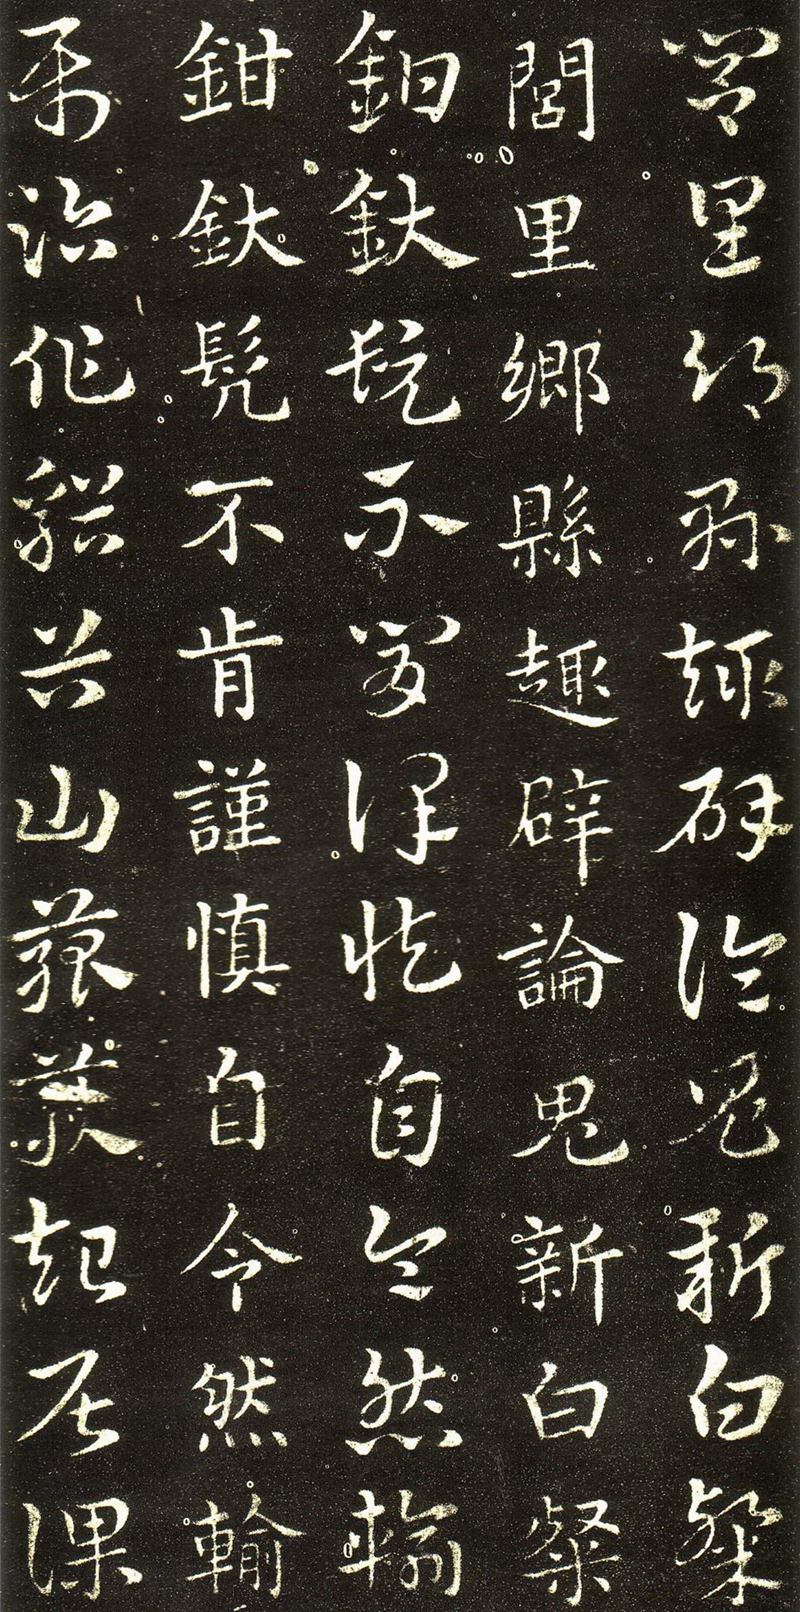 閭里鄉縣趣辟論鬼新白粲
閭里鄉縣趣辟論鬼新白粲
鉗釱髡不肯謹慎自令然輸
鉗釱髡不肯謹慎自令然輸
屬詔作谿谷山箛篍起居課